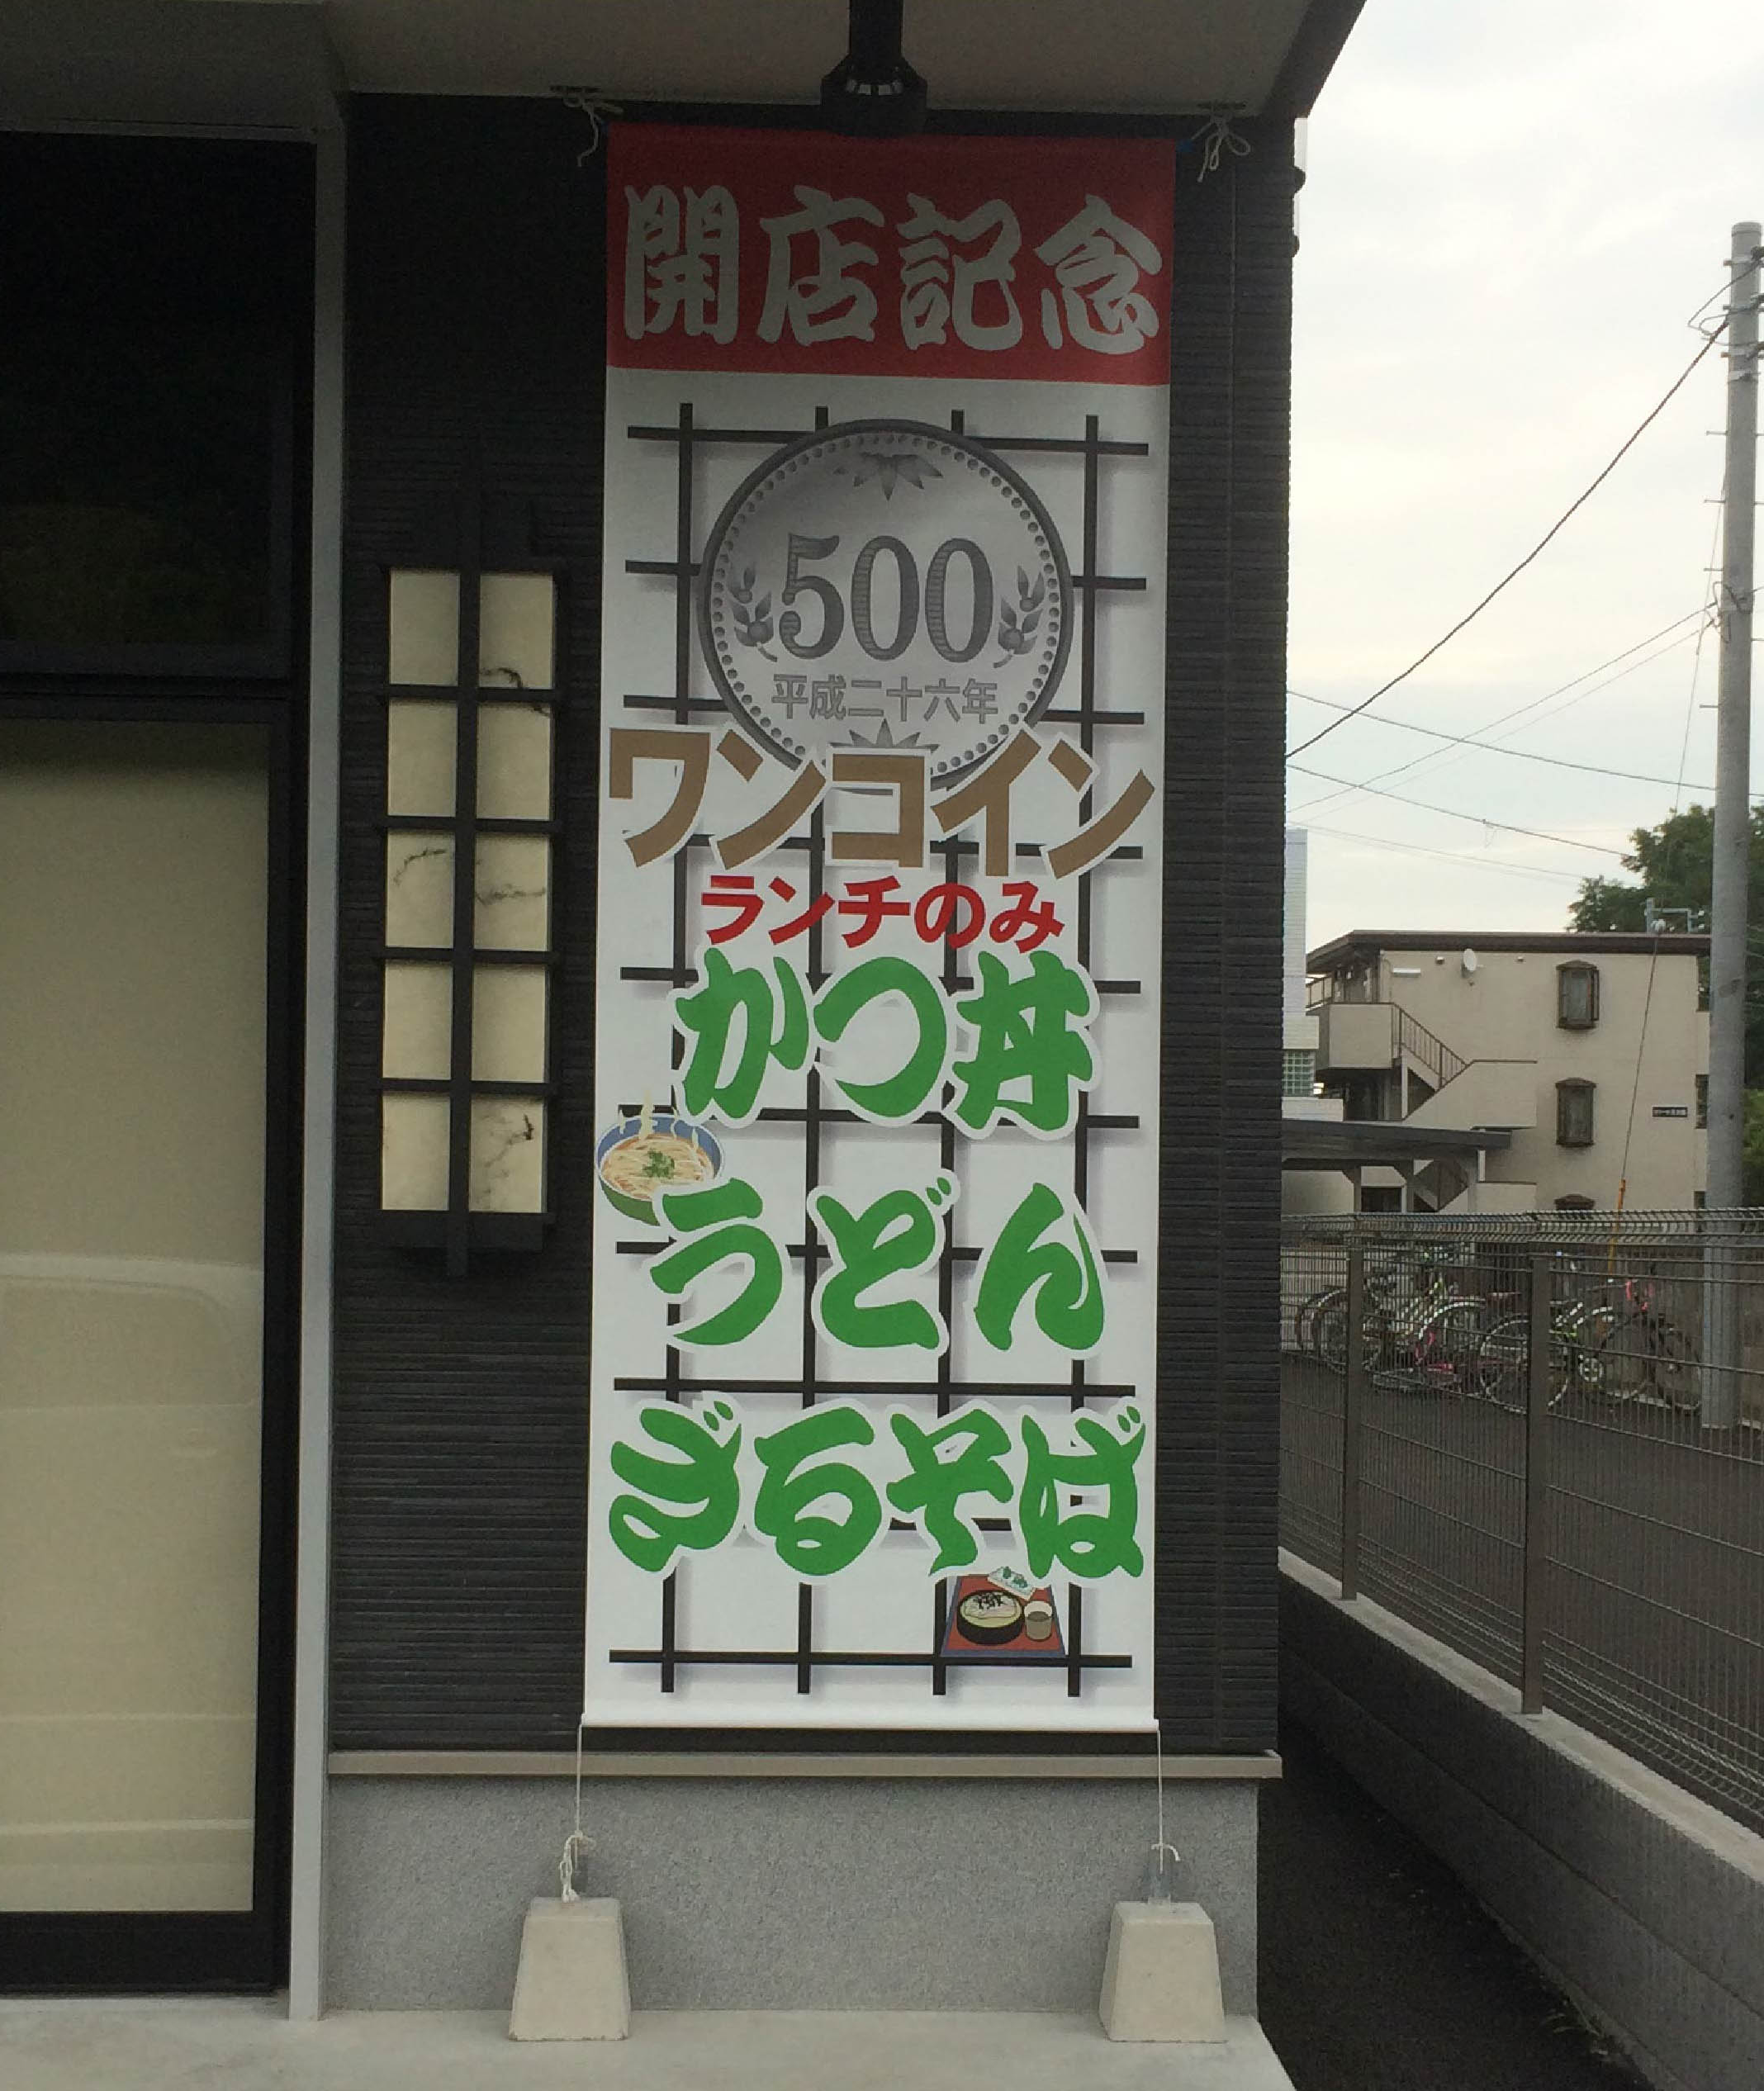 開店記念
500
平成二十六年
ワンコイン
ランチのみ
かつ丼
うどん
ざるそば